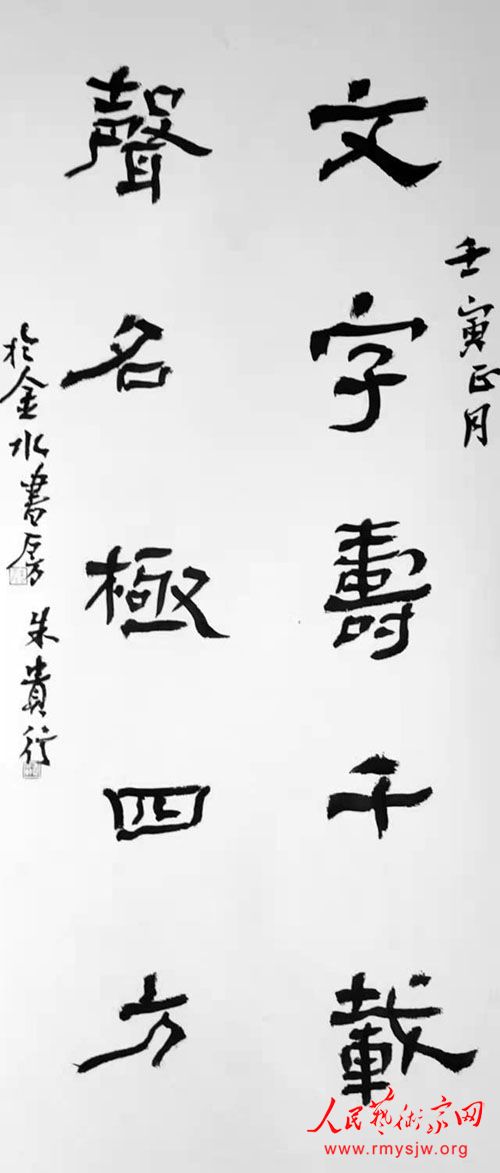 壬寅正月
文字壽千載
聲名極四方
於金水書房
朱貴行
人民藝術家网
www.rmysjw.org